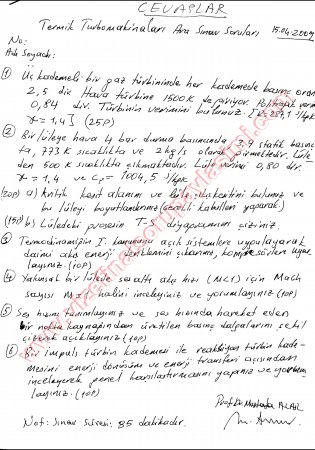 CEVAPLAR
Termik Turbomakinaları Ara Sınav Soruları 15.04.2009
No:
Adı Soyadı:
① Üç kademeli bir gaz türbininde her kademede basınç oranı
2,5 dir. Hava türbine 1500 K de giriyor. Politropik verim
0,84 dir. Türbinin verimini bulunuz. [R=287,1 J/kgK
γ = 1,4] (25P)
② Bir lüleye hava 4 bar durma basıncında 3.9 statik basınç
ta, 773 K sıcaklıkta ve 2 kg/s olarak girmektedir. Lüle
den 500 K sıcaklıkta çıkmaktadır. Lüle verimi 0,80 dir.
γ = 1,4 ve cp = 1004,5 J/kgK
(20P) a) Kritik kesit alanını ve çıkış kesitini bulunuz ve
bu lüleyi boyutlandırınız (gerekli kabulleri yaparak.)
(15P) b) Lüledeki prosesin T-S diyagramını çiziniz.
③ Termodinamiğin I. kanununu açık sistemlere uygulayarak
daimi akış enerji denklemini çıkarınız, kompresörlere uygu
layınız. (10P)
④ Yakınsak bir lülede sesaltı akış hızı (M<1) için Mach
sayısı M=1 halini inceleyiniz ve yorumlayınız (10P)
⑤ Ses hızını tanımlayınız ve ses hızında hareket eden
bir nokta kaynağından üretilen basınç dalgalarını şekil
çizerek açıklayınız (10P)
⑥ Bir impuls türbin kademesi ile reaksiyon türbin kade-
mesini enerji dönüşümü ve enerji transferi açısından
inceleyerek genel karşılaştırmasını yapınız ve yorum
layınız. (10P)
Not: Sınav süresi 85 dakikadır.